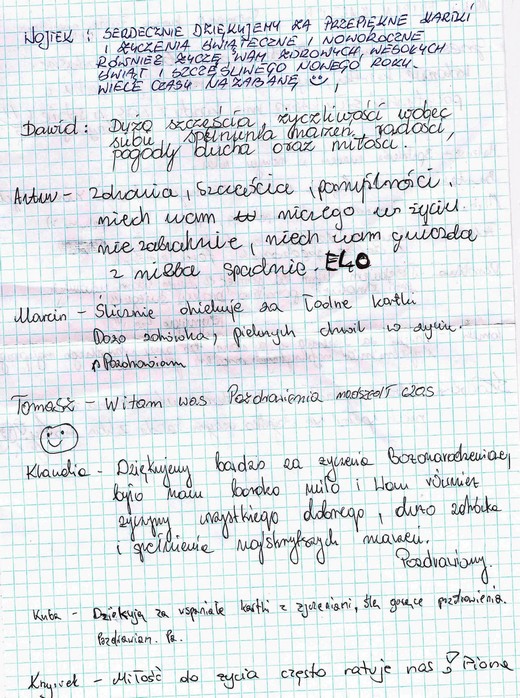 WOJTEK : SERDECZNIE DZIĘKUJEMY ZA PRZEPIĘKNE KARTKI
I ŻYCZENIA ŚWIĄTECZNE I NOWOROCZNE
RÓWNIEŻ ŻYCZĘ WAM ZDROWYCH, WESOŁYCH
ŚWIĄT I SZCZĘŚLIWEGO NOWEGO ROKU.
WIELE CZASU NA ZABAWĘ
Dawid : Dyżo szczęścia, życzliwości wobec
siebie spełnienia marzeń, radości,
pogody ducha oraz miłości.
Artur - zdrowia, szczęścia, pomyślności.
niech wam niczego w życiu
nie zabraknie, niech wam gwiazda
z nieba spadnie. ELO
Marcin - Ślicznie dziekuje za Ładne kartki
Dozo zdrówka, pieknych chwil w życiu.
Pozdrawiam
Tomasz - Witam was Pozdrowienia nadszedł czas
Klaudia - Dziękujemy bardzo za życzenia Bozonarodzeniowe,
było nam bardzo miło i Wam również
życzymy wszystkiego dobrego, dużo zdrówka
i spełnienia najskrytszych marzeń.
Pozdrawiamy.
Kuba - Dziękuję za wspaniałe kartki z życzeniami, ślę gorące pozdrowienia.
Pozdrawiam. Pa.
Krzysiek - Miłość do życia często ratuje nas ! Piona